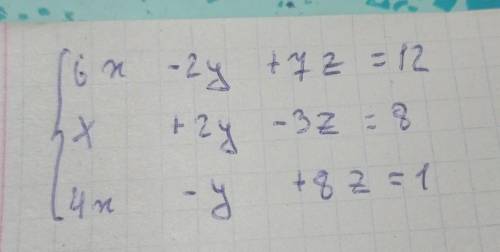 6x -2y +7z = 12
x +2y -3z = 8
4x -y +8z = 1